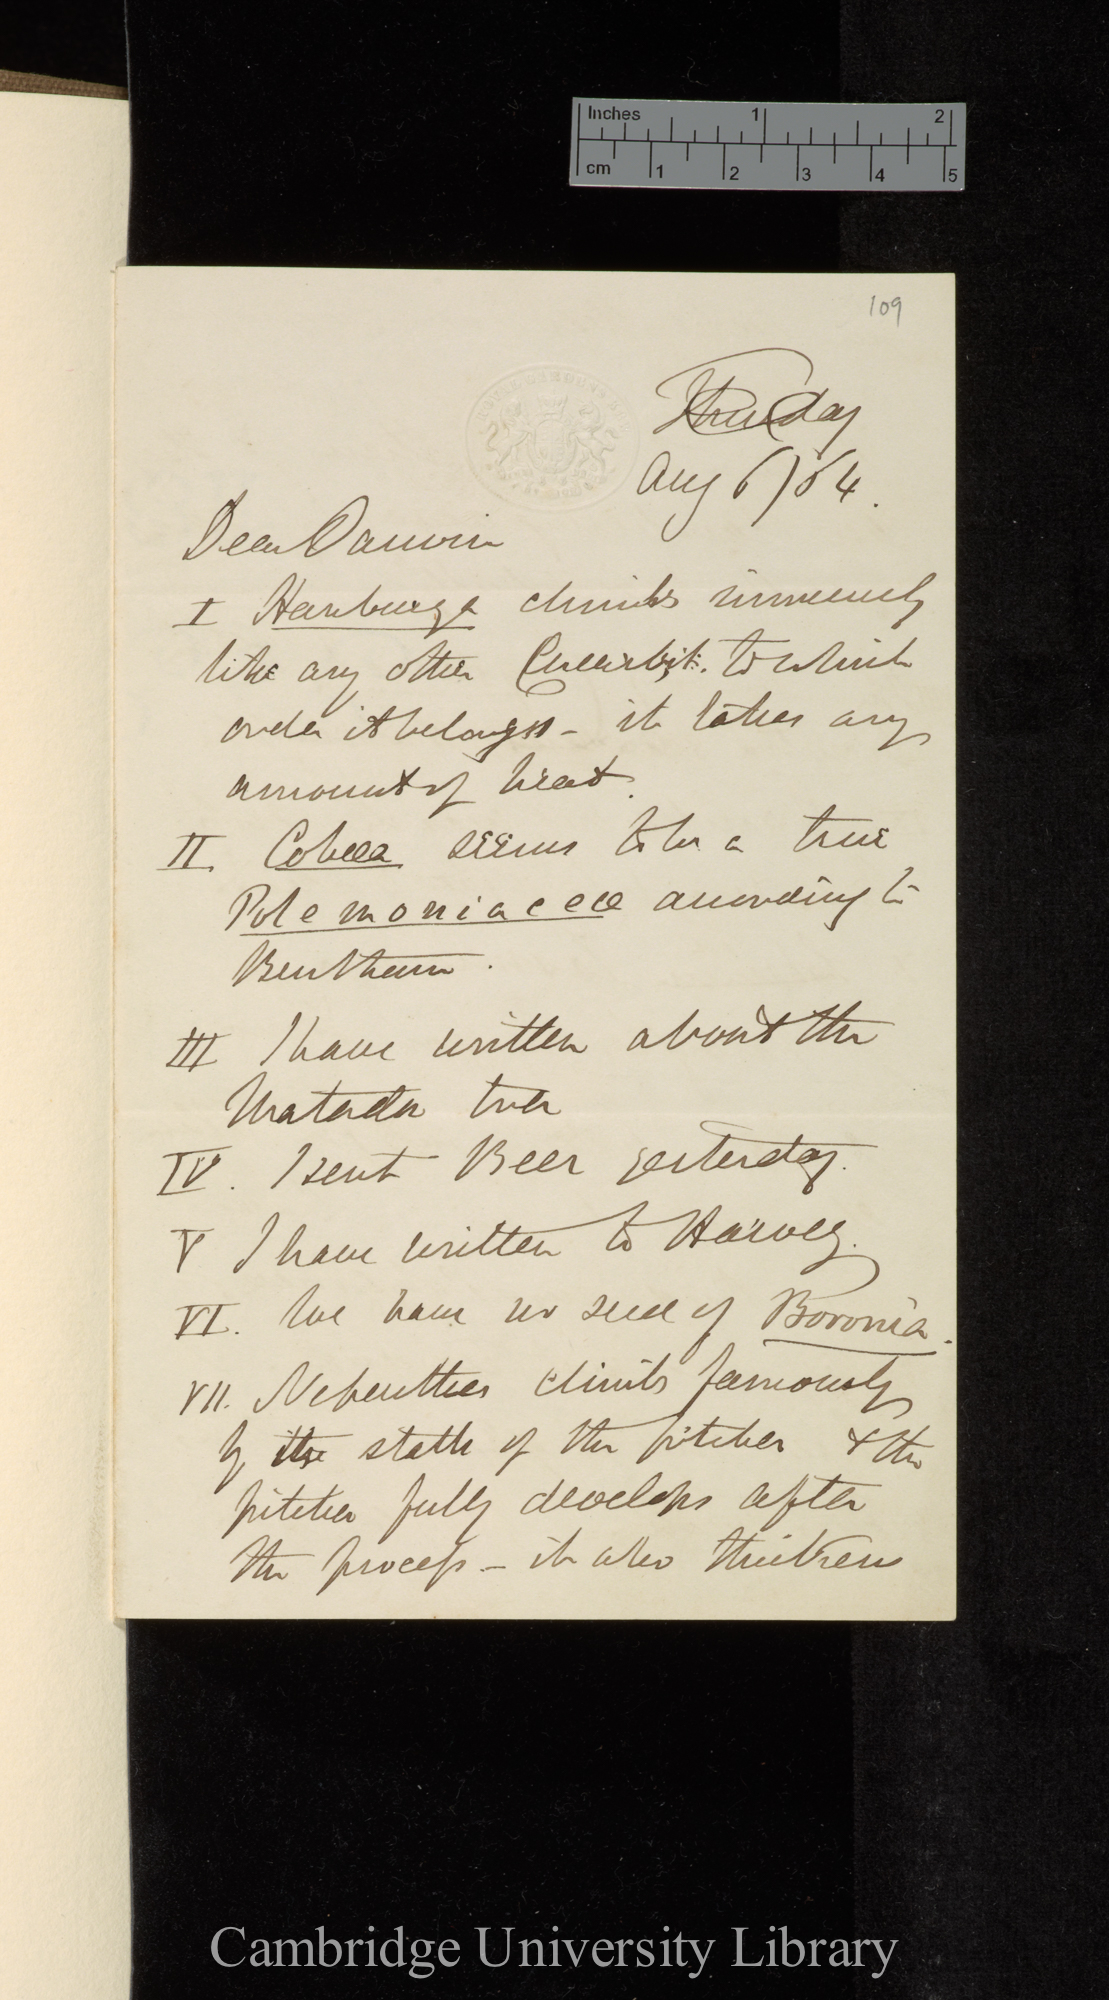 Inches 1 2
cm 1 2 3 4 5
109
Thursday
Aug 6/64.
Dear Darwin
I Hanburya climbs immensely
like any other Cucurbit. to which
order it belongs – it takes any
amount of heat.
II. Cobœa seems to be a true
Polemoniaceœ according to
Bentham.
III I have written about the
Matador tree
IV. I sent Beer yesterday.
V I have written to Harvey.
VI. We have no seed of Boronia.
VII. Nepenthes climbs famously
by the stalk of the pitcher & the
pitcher fully develops after
the process – it also thickens
Cambridge University Library